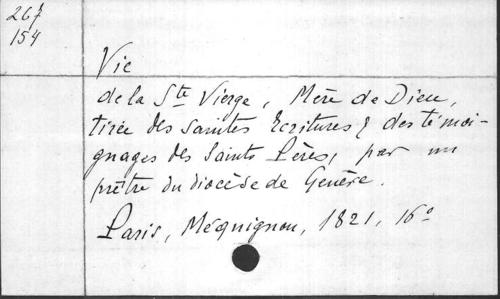 267
154
Vie
de la Ste Vierge, Mère de Dieu,
tirée des saintes Ecritures & des témoi-
gnages des Saints Pères, par un
prêtre du diocèse de Genève.
Paris, Méquignon, 1821, 16º